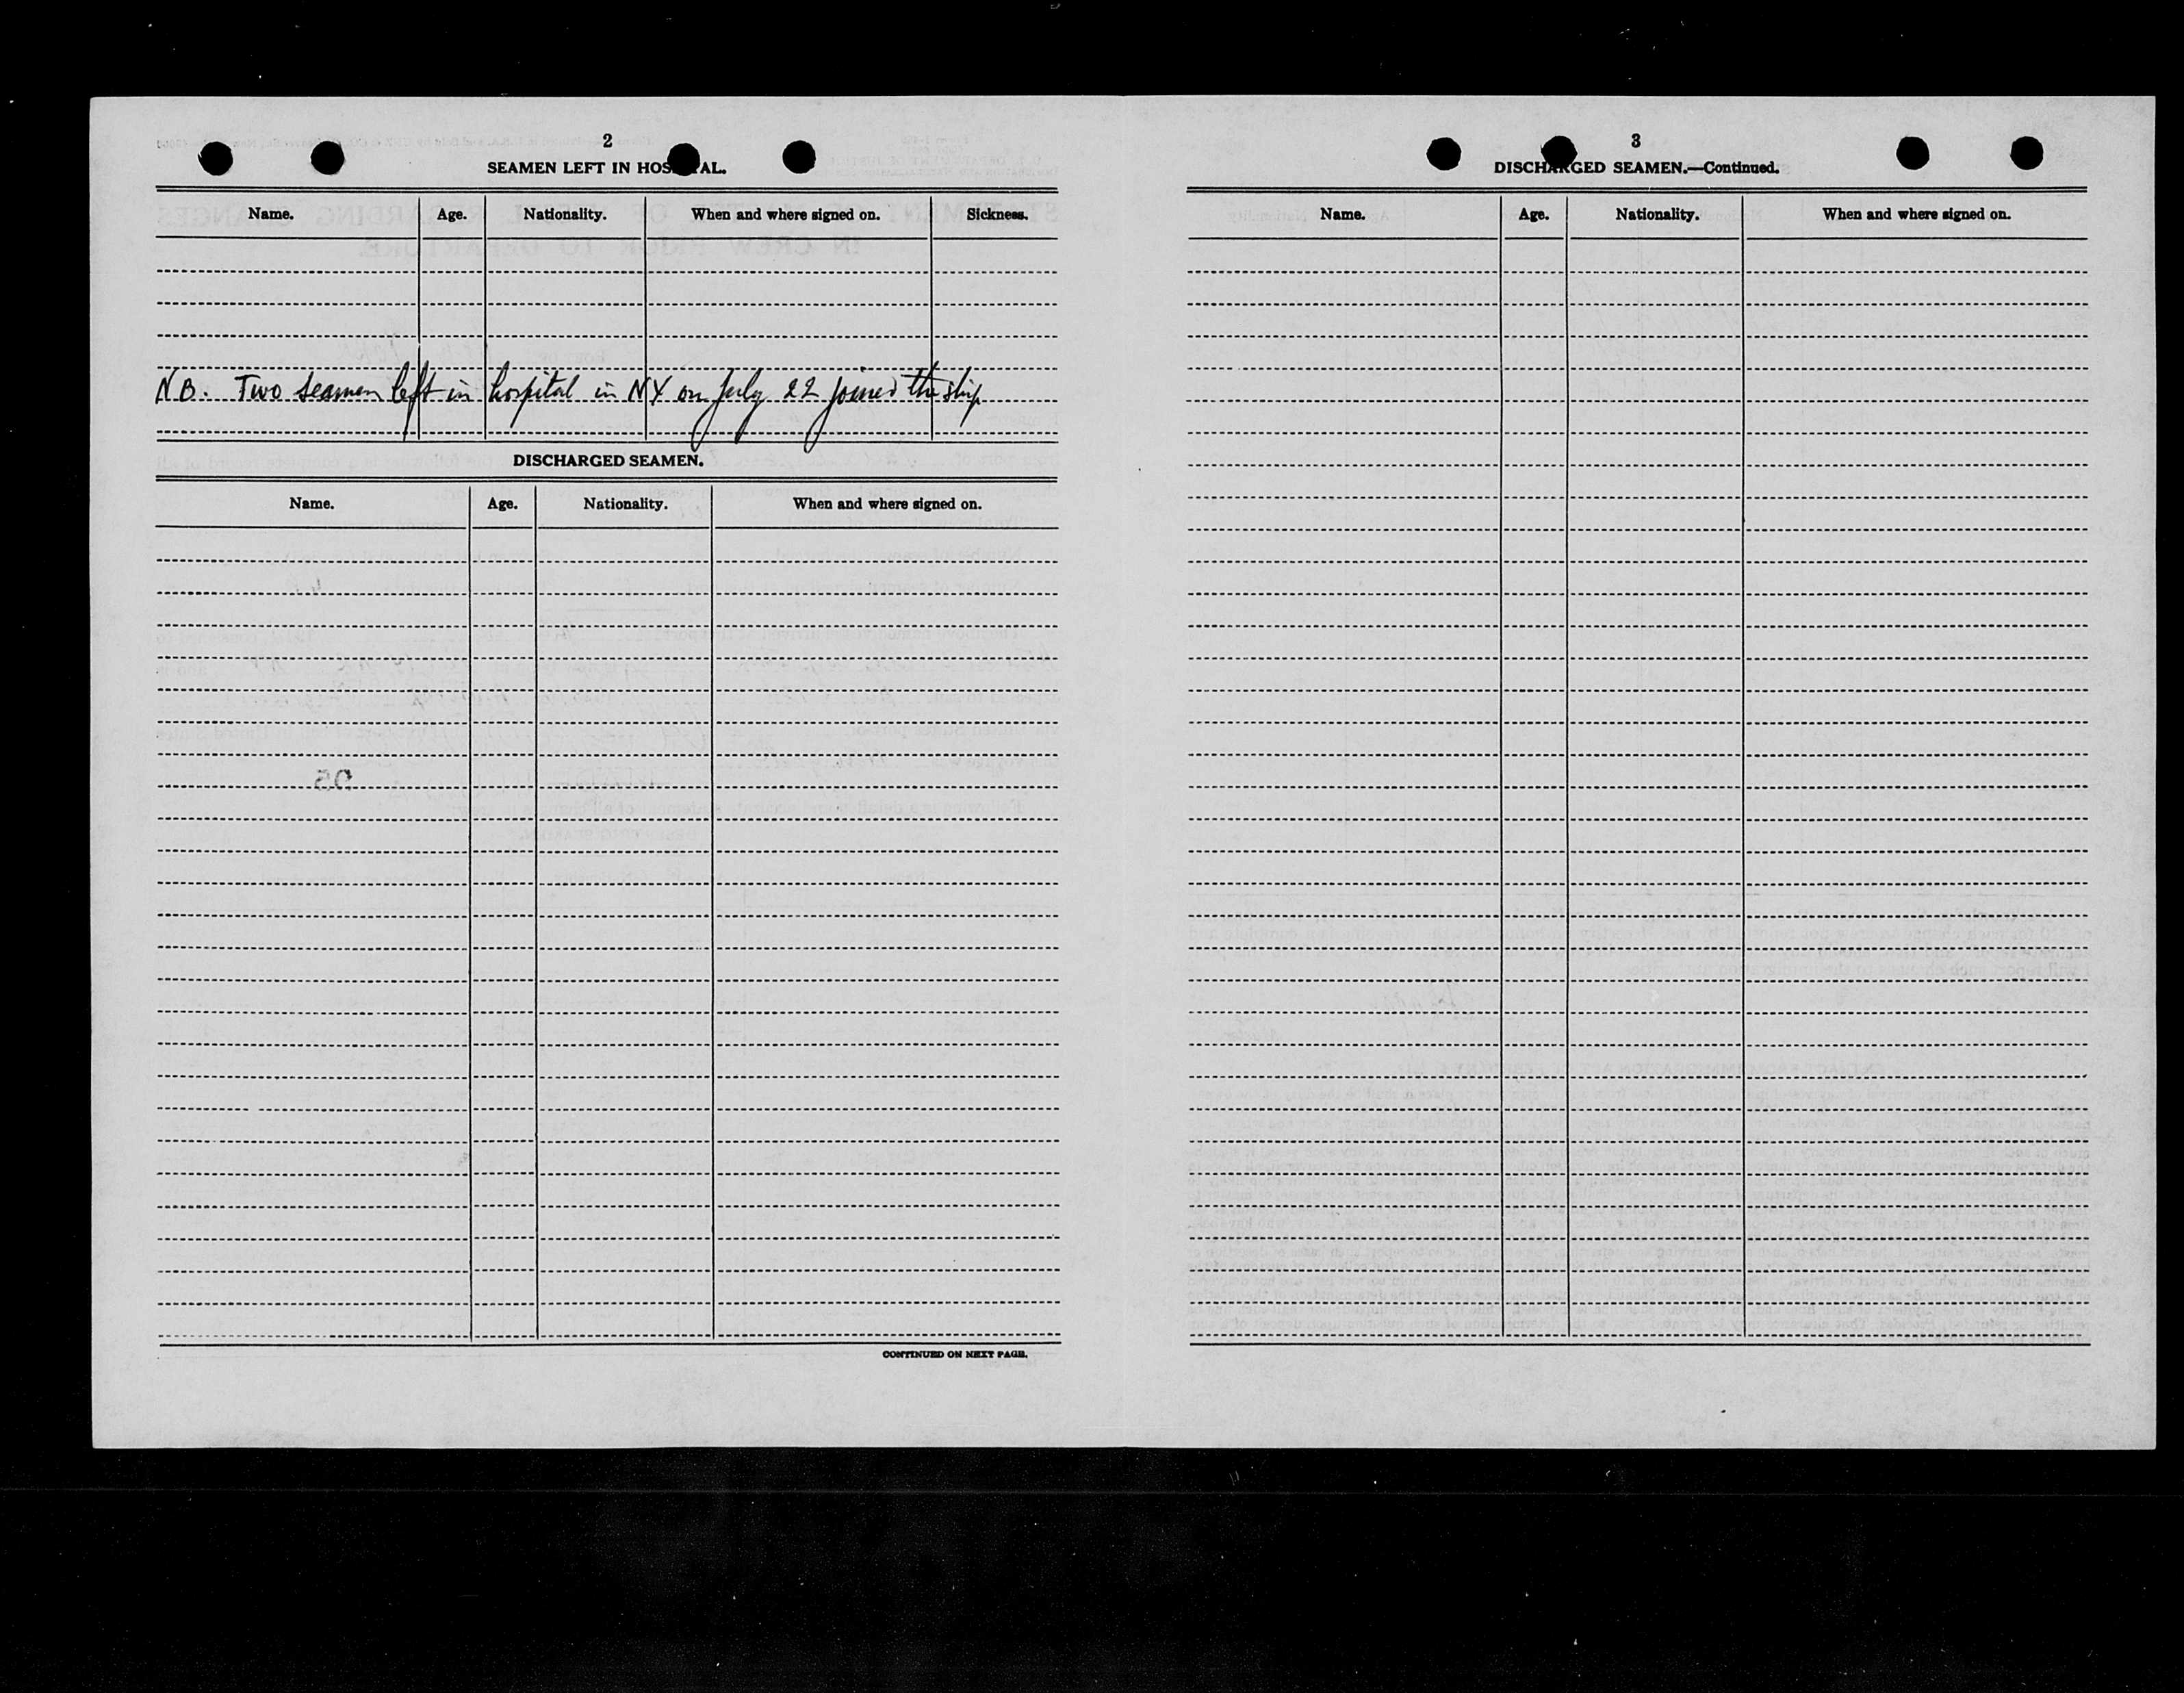 2
SEAMEN LEFT IN HOS AL.
Name. Age. Nationality. When and where signed on. Sickness.
NB. Two seamen left in hospital in NY on July 22 joined the ship
DISCHARGED SEAMEN.
Name. Age. Nationality. When and where signed on.
CONTINUED ON NEXT PAGE.
3
DISCHARGED SEAMEN.—Continued.
Name. Age. Nationality. When and where signed on.